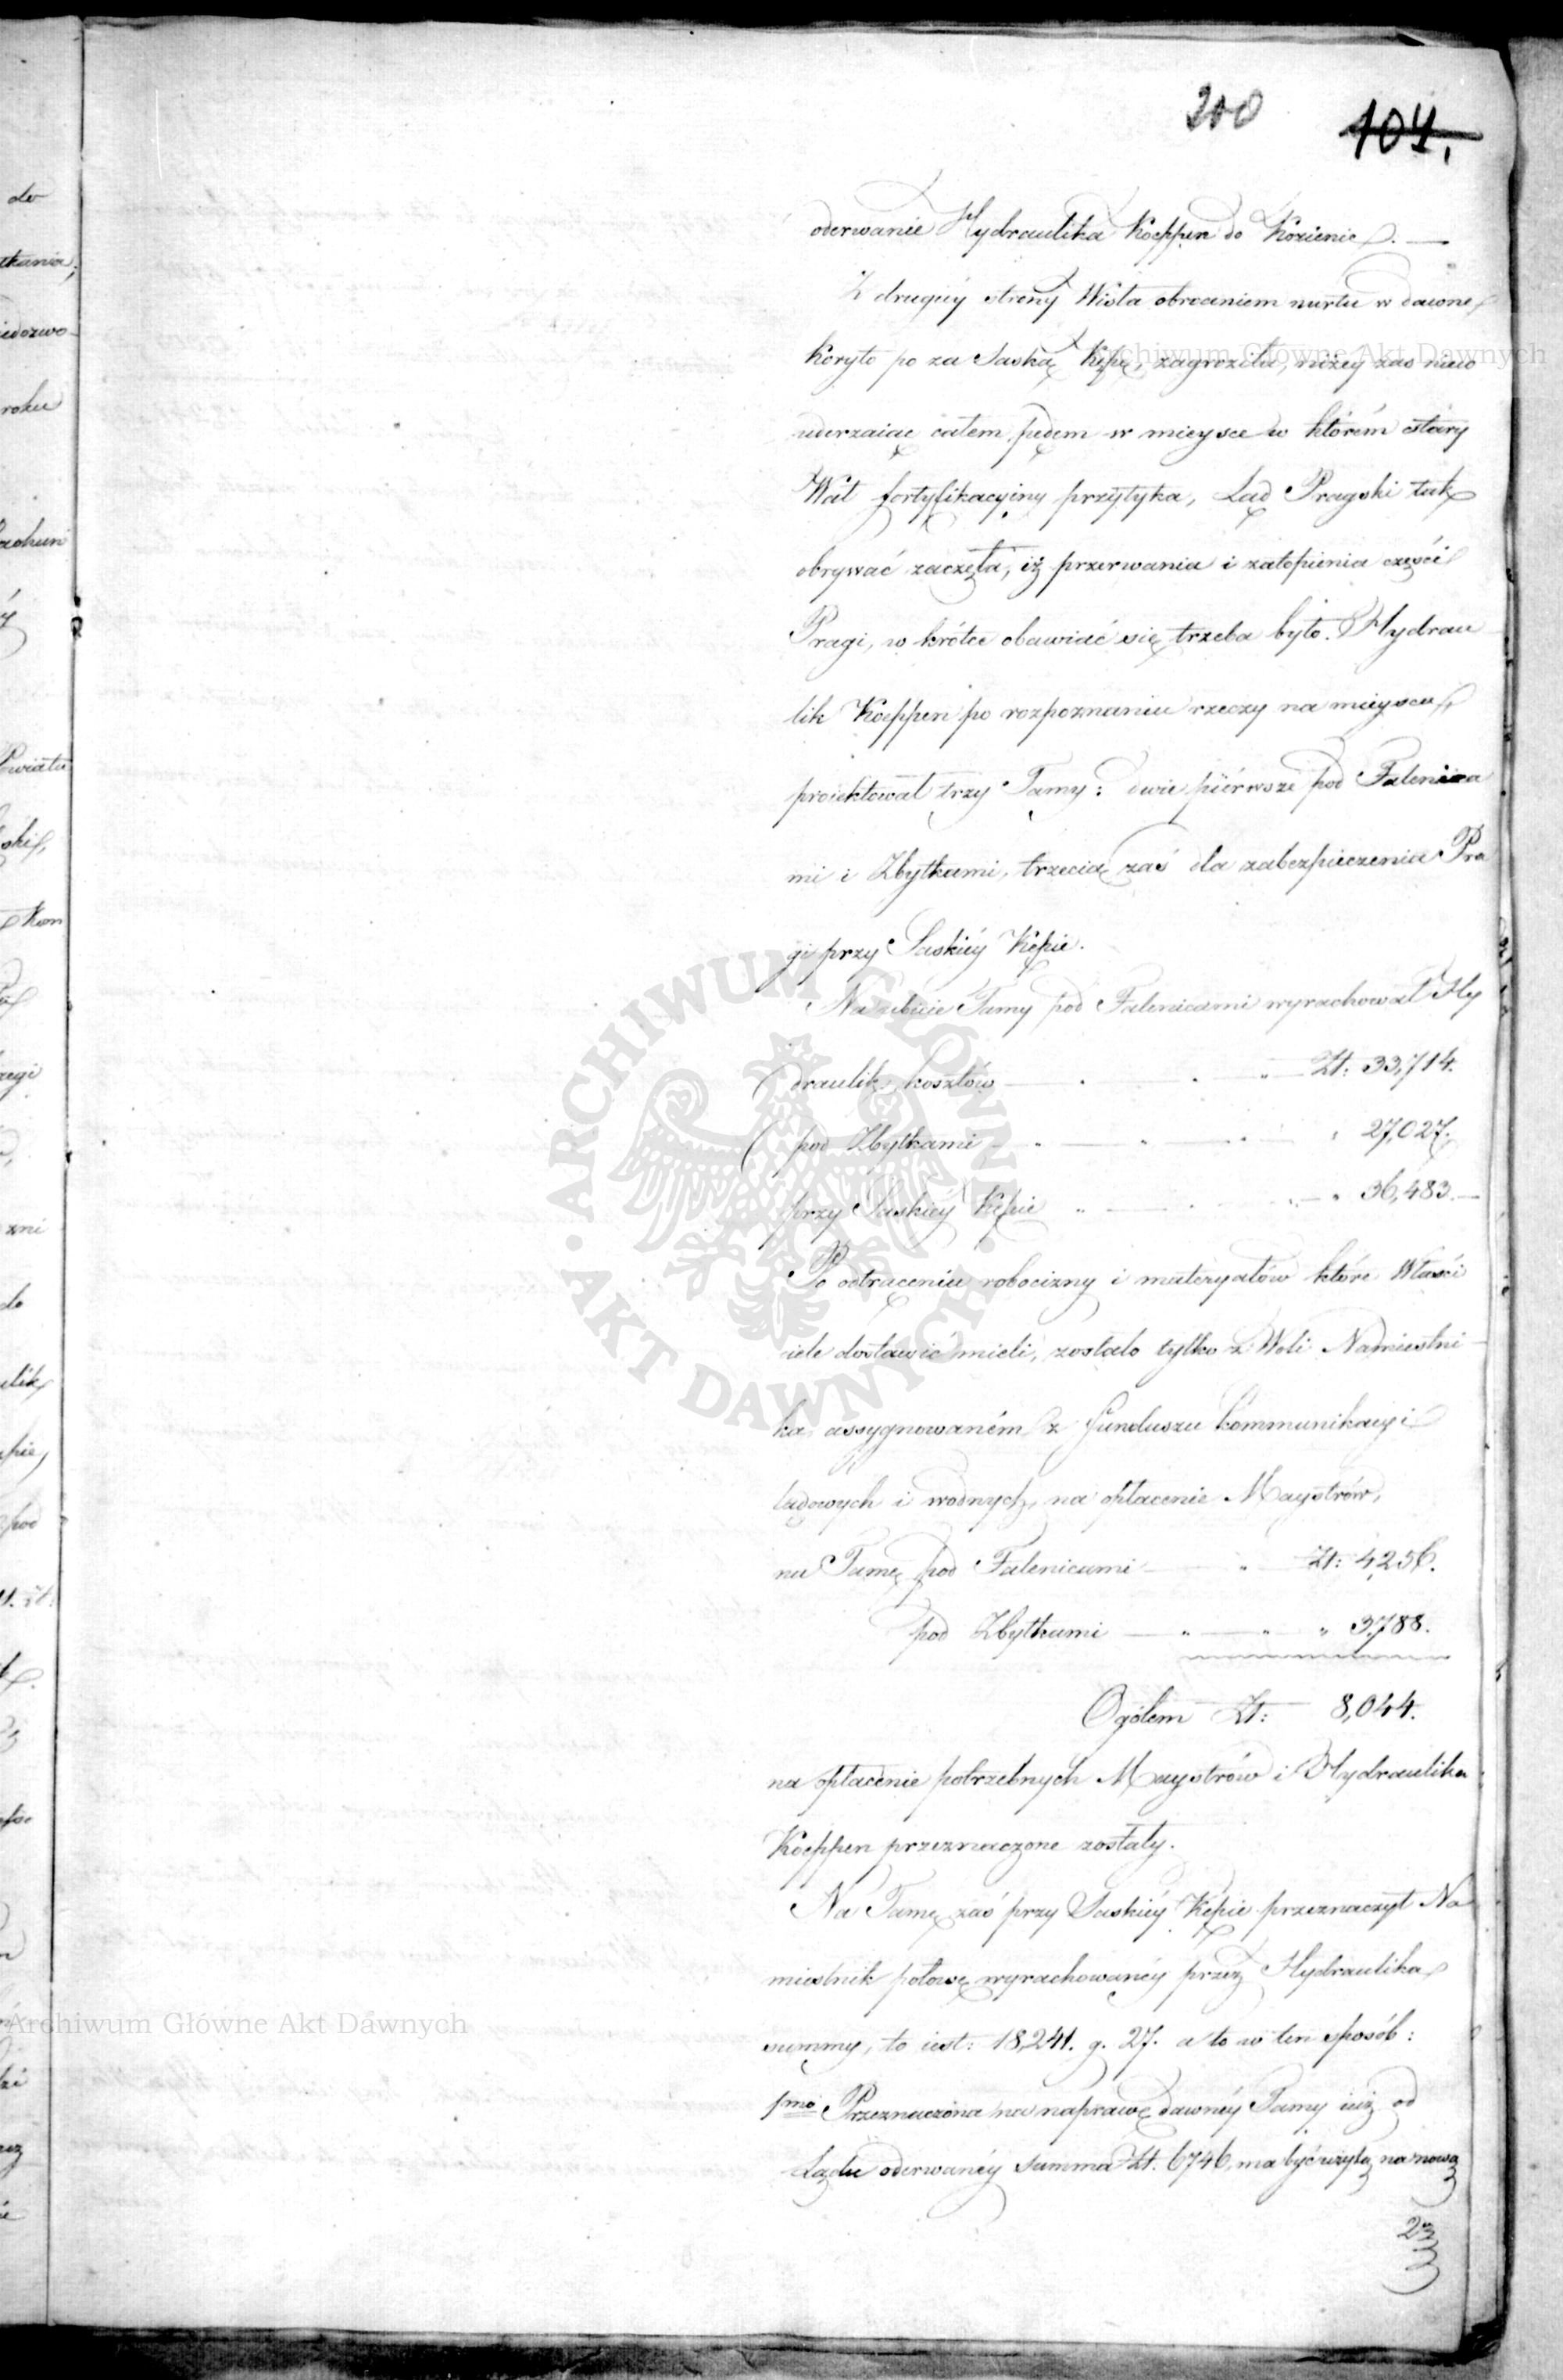 200 104.
oderwanie Hydraulika Koeppen do Kozienic. —
Z drugiéy strony Wisła obroceniem nurtu w dawne
Koryto po za Saską Kępę, zagroziła, niżey zas nieco
uderzaiąc całem pędem w mieysce w którém stary
Wał fortyfikacyiny przytyka, Ląd Pragski tak
obrywać zaczęła, iż przerwania i zatopienia części
Pragi, w krótce obawiać się trzeba było. Hydrau
lik Koeppen po rozpoznaniu rzeczy na mieyscu,
proiektował trzy Tamy: dwie piérwsze pod Falenica
mi i Zbytkami, trzecią zaś dla zabezpieczenia Pra
gi przy Saskiéy Kępie.
Na zbicie Tamy pod Falenicami wyrachował Hy
draulik kosztów — " — Zł: 33,714.
pod Zbytkami — " — " — " 27,027.
przy Saskiéy Kępie " — " — " 36,483. —
Po odtrąceniu robocizny i materyałów które Właści
ciele dostawić mieli, zostało tylko z Woli Namiestni-
ka assygnowaném z funduszu kommunikacyi
lądowych i wodnych, na opłacenie Maystrów,
na Tamę pod Falenicami — " — Zł: 4,256.
pod Zbytkami — " — " — " 3,788.
Ogółem Zł: 8,044.
na opłacenie potrzebnych Maystrów i Hydraulika
Koeppen przeznaczone zostały.
Na Tamę zaś przy Saskiéy Kępie przeznaczył Na
miestnik połowę wyrachowanéy przez Hydraulika
summy, to iest: 18,241. g. 27. a to w ten sposób:
pmo Przeznaczona na naprawę dawnéy Tamy iuż od
Lądu oderwanéy summa Zł. 6746, ma być użytą na nową
do
tkania;
roku
Powiatu
zni
do
pod
Archiwum Główne Akt Dawnych
ARCHIWUM GŁÓWNE · AKT DAWNYCH ·
Archiwum Główne Akt Dawnych